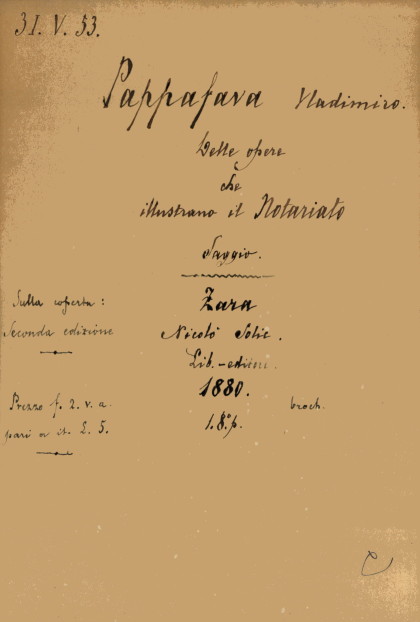 31. V. 53.
Pappafava Vladimiro.
Delle opere
che
illustrano il Notariato
Saggio.
Sulla coperta:
Seconda edizione
Zara
Nicolò
Lib. - editore
1880.
Prezzo f. 2. v. a.
pari a it. L. 5.
broch.
1. 8° p.